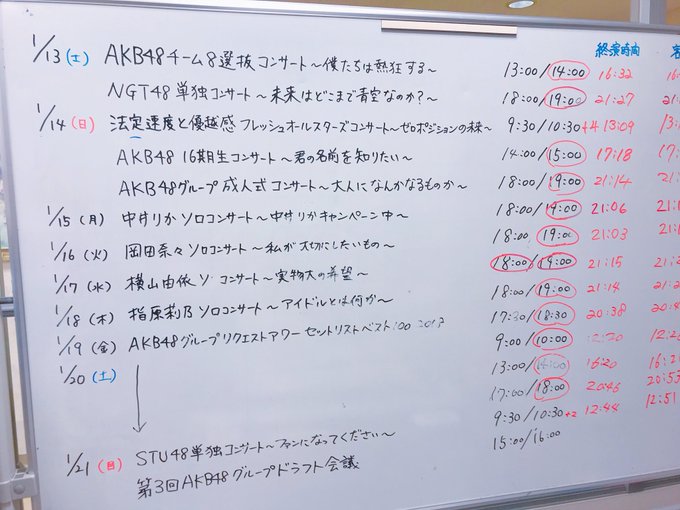 終演時間
1/13(土) AKB48チーム8選抜コンサート〜僕たちは熱狂する〜 13:00/14:00 16:32
NGT48単独コンサート〜未来はどこまで青空なのか?〜 18:00/19:00 21:27
1/14(日) 法定速度と優越感 フレッシュオールスターズコンサート〜ゼロポジションの未来〜 9:30/10:30 +4 13:09
AKB48 16期生コンサート〜君の名前を知りたい〜 14:00/15:00 17:18
AKB48グループ成人式コンサート〜大人になんかなるものか〜 18:00/19:00 21:14
1/15(月) 中井りかソロコンサート〜中井りかキャンペーン中〜 18:00/19:00 21:06
1/16(火) 岡田奈々ソロコンサート〜私が大切にしたいもの〜 18:00 19:00 21:03
1/17(水) 横山由依ソ コンサート〜実物大の希望〜 18:00/19:00 21:15
1/18(木) 指原莉乃ソロコンサート〜アイドルとは何か〜 18:00/19:00 21:14
1/19(金) AKB48グループリクエストアワーセットリストベスト100 17:30/18:30 20:38
1/20(土) 9:00/10:00 12:20
13:00/14:00 16:20
17:00/18:00 20:46 20:53
1/21(日) STU48単独コンサート〜ファンになってください〜 9:30/10:30 +2 12:44 12:51
第3回AKB48グループドラフト会議 15:00/16:00